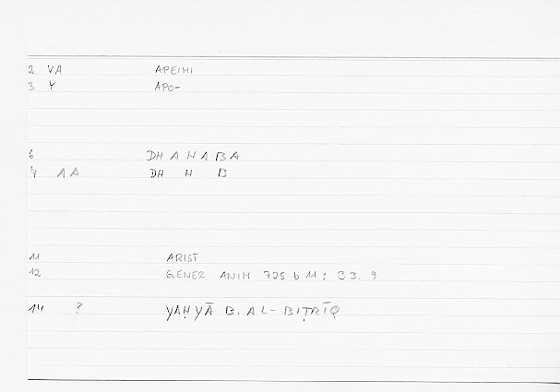 2 VA APEIMI
3 Y APO-
6 DHAHABA
7 AA DH H B
11 ARIST
12 GENER ANIM 725 b 11 : 33.9
14 ? YAḤYĀ B. AL-BIṬRĪQ